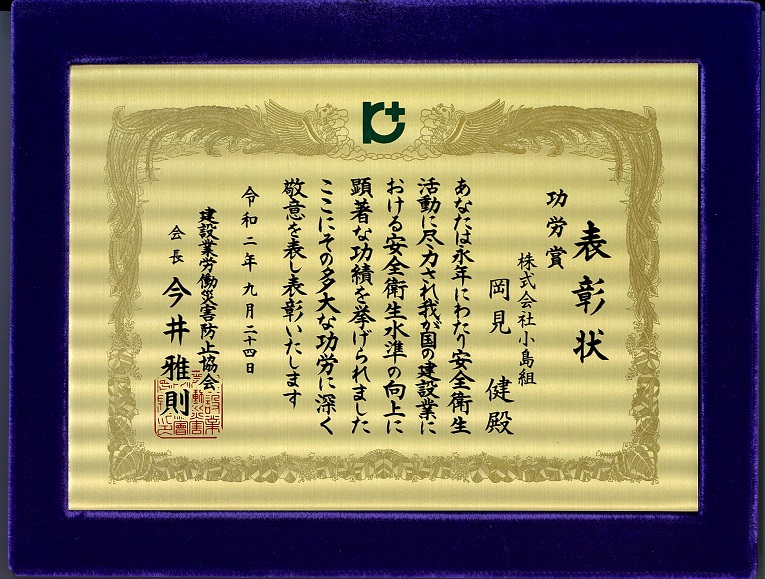 表彰状
功労賞
株式会社小島組
岡見 健殿
あなたは永年にわたり安全衛生
活動に尽力され我が国の建設業に
おける安全衛生水準の向上に
顕著な功績を挙げられました
ここにその多大な功労に深く
敬意を表し表彰いたします
令和二年九月二十四日
建設業労働災害防止協会
会長 今井雅則